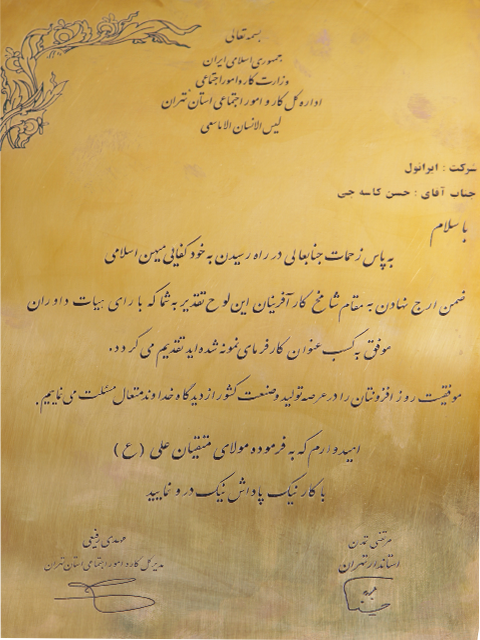 بسمه تعالی
جمهوری اسلامی ایران
وزارت کار و امور اجتماعی
اداره کل کار و امور اجتماعی استان تهران
لیس الانسان الا ماسعی
شرکت : ایرانول
جناب آقای : حسن کاسه چی
با سلام
به پاس زحمات جنابعالی در راه رسیدن به خودکفایی میهن اسلامی
ضمن ارج نهادن به مقام شامخ کارآفرینان این لوح تقدیر به شما که با رای هیات داوران
موفق به کسب عنوان کارفرمای نمونه شده اید تقدیم می گردد.
موفقیت روز افزونتان را در عرصه تولید و صنعت کشور از دیدگاه خداوند متعال مسئلت می نماییم.
امیدوارم که به فرموده مولای متقیان علی (ع)
با کار نیک پاداش نیک درو نمایید
مرتضی تمدن
استاندار تهران
مهدی رفیعی
مدیر کل کار و امور اجتماعی استان تهران